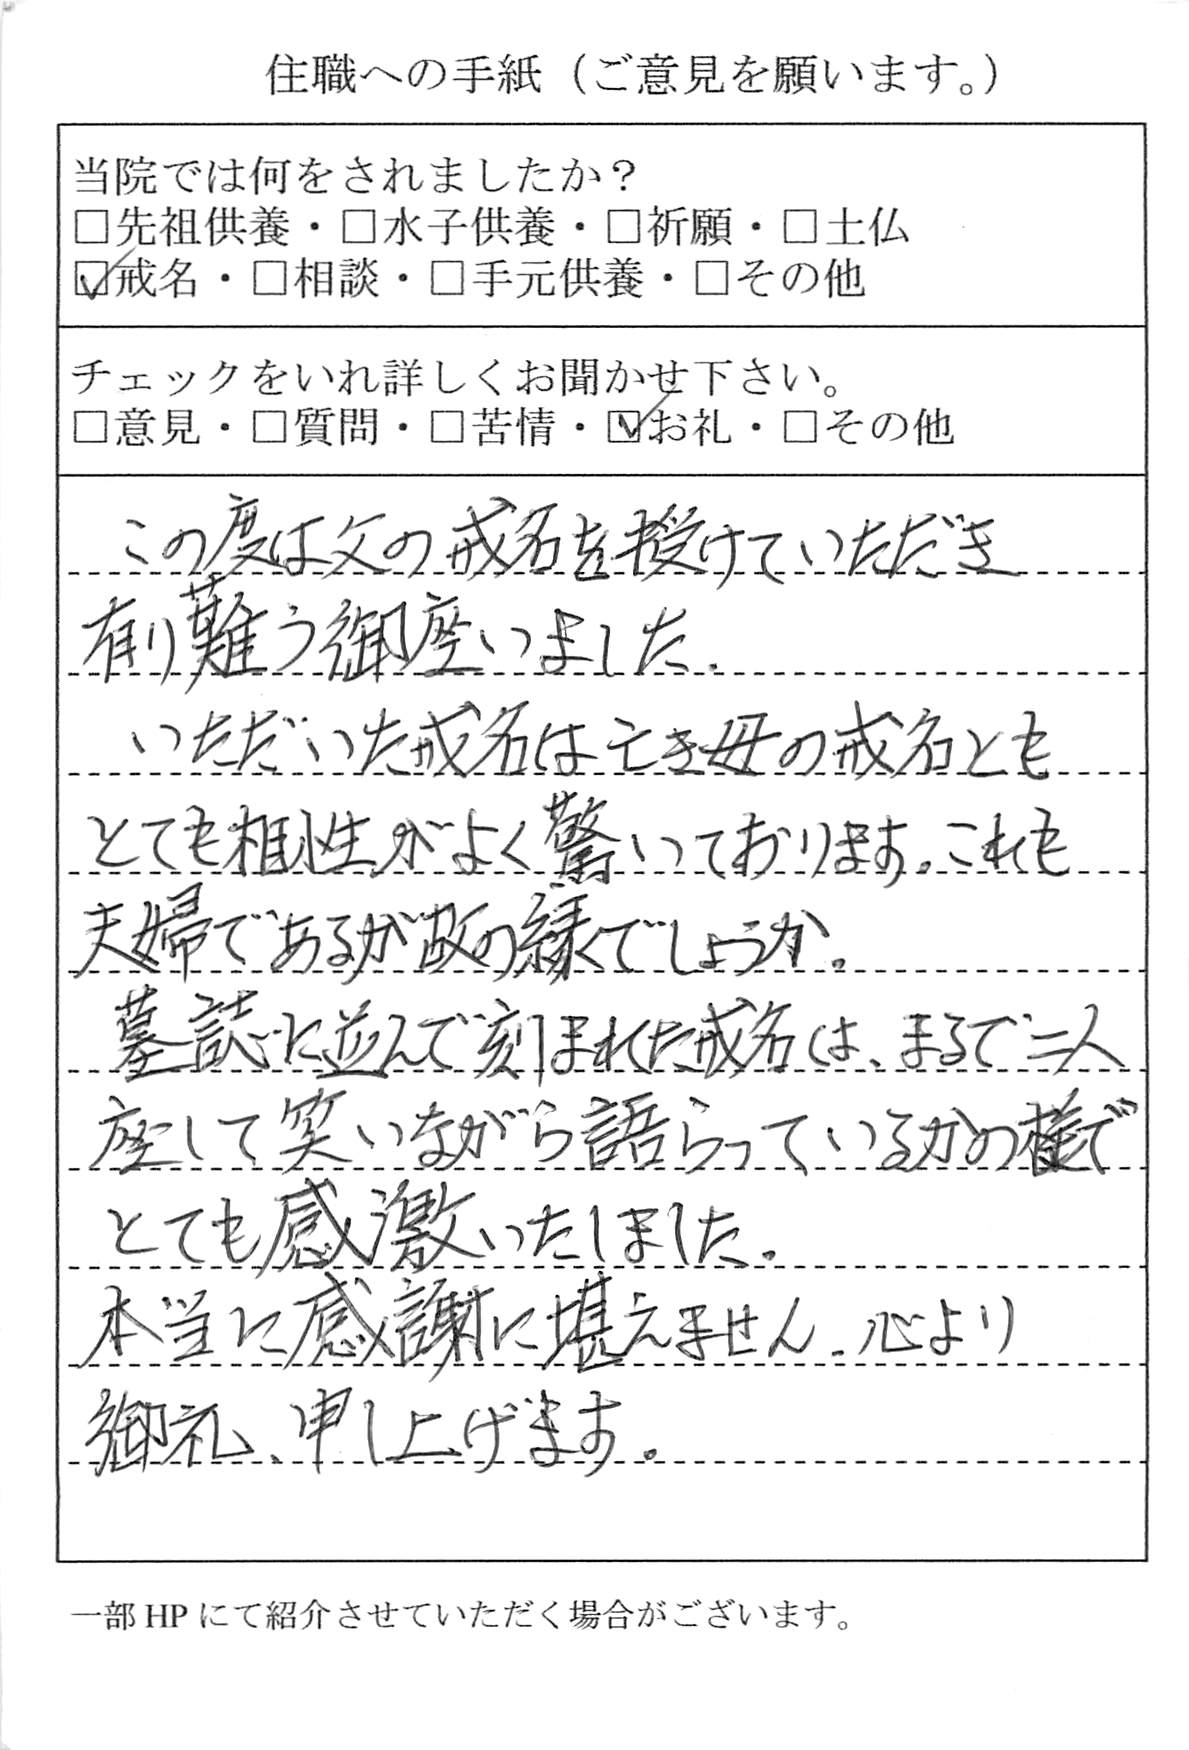 住職への手紙（ご意見を願います。）
当院では何をされましたか？
□先祖供養・□水子供養・□祈願・□土仏
☑戒名・□相談・□手元供養・□その他
チェックをいれ詳しくお聞かせ下さい。
□意見・□質問・□苦情・☑お礼・□その他
この度は父の戒名を授けていただき
有り難う御座いました.
いただいた戒名は亡き母の戒名とも
とても相性がよく驚いております。これも
夫婦であるが故の縁でしょうか.
墓誌に並んで刻まれた戒名は、まるで二人
座して笑いながら語らっているかの様で
とても感激いたしました.
本当に感謝に堪えません. 心より
御礼、申し上げます。
一部 HP にて紹介させていただく場合がございます。